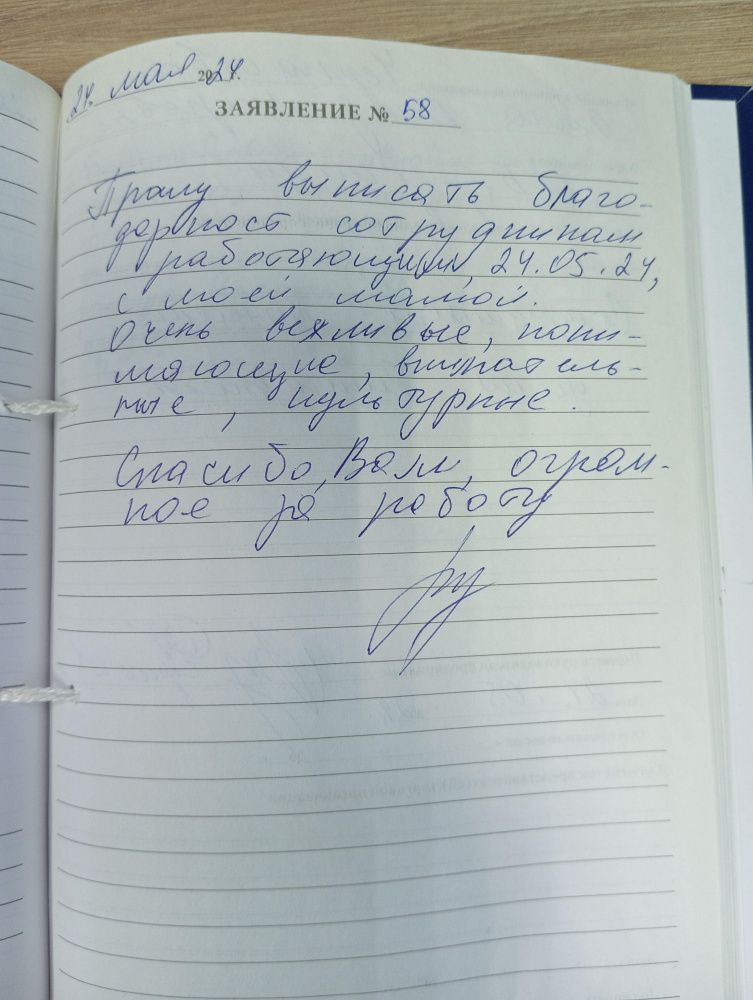 24. мая 2024г.
ЗАЯВЛЕНИЕ № 58
Прошу выписать благо-
дарност сотрудникам
работающим, 24.05.24,
с моей мамой.
Очень вежливые, пони-
мающие, вниматель-
ные, культурные.
Спасибо, Вам, огром-
ное за работу